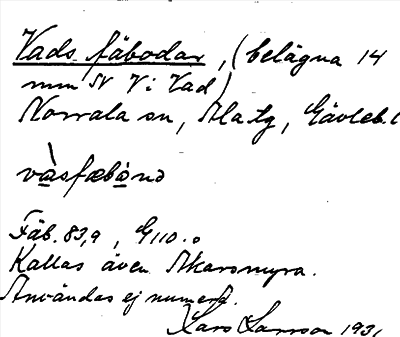 Vads fäbodar, (belägna 14
mm N V i Vad)
Norrala sn, Ala tg, Gävleb. l
vàsfæbònɔ
Fäb. 83,9, G 110.0
Kallas även Akarsmyra.
Användas ej numera.
Lars Larsson 1931